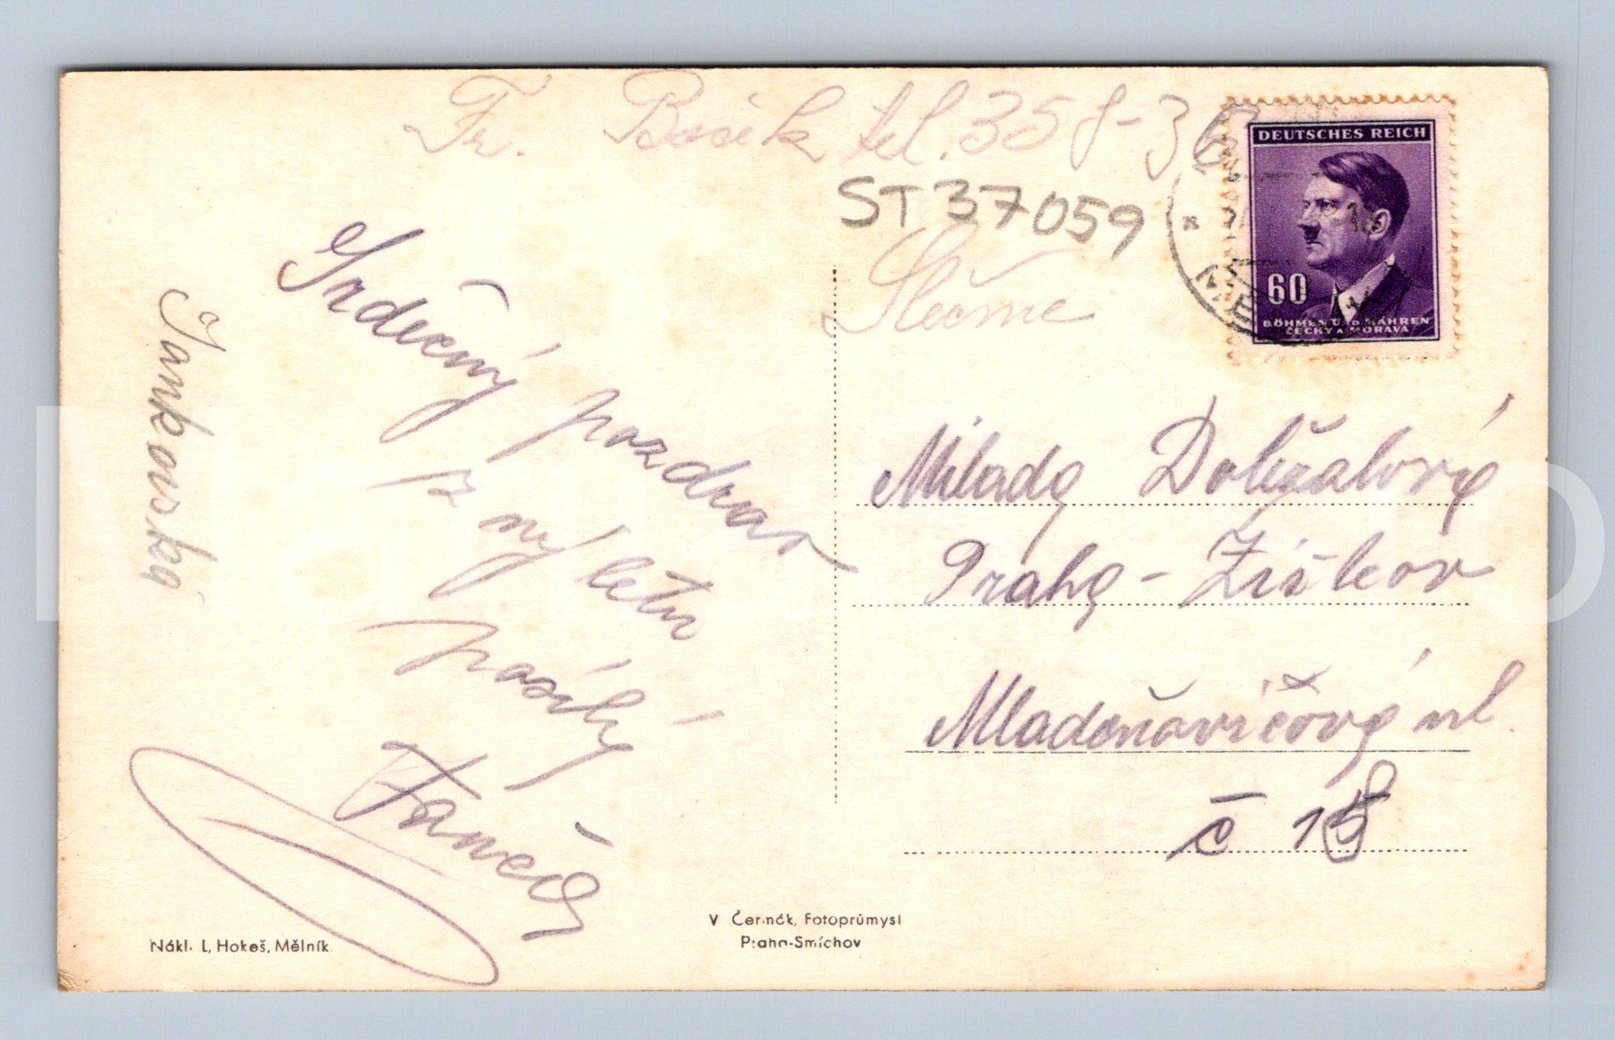 Fr. tel. 358-36
ST 37059
Slečně
Milada Doležalová
Praha - Žižkov
Mladoňovičova ul.
č 18
Srdečný pozdrav
z výletu
posílá
Jankovská
DEUTSCHES REICH
60
BÖHMEN UND MÄHREN
ČECHY A MORAVA
V Čermák, Fotoprůmysl
Praha-Smíchov
Nákl. L. Hokeš, Mělník.